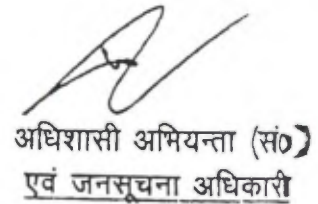 अधिशासी अभियन्ता (सं०)
एवं जनसूचना अधिकारी